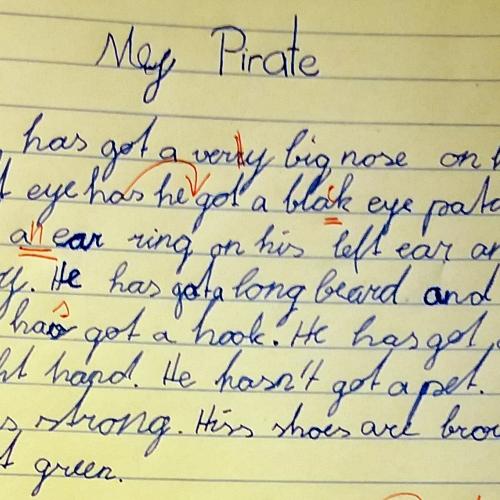 My Pirate
has got a verry big nose on h
t eye has he got a blak eye patc
an ear ring on his left ear an
y. He has got a long beard and
has got a hook. He has got
ht hand. He hasn't got a pet.
s strong. Hiss shoes are brow
t green.